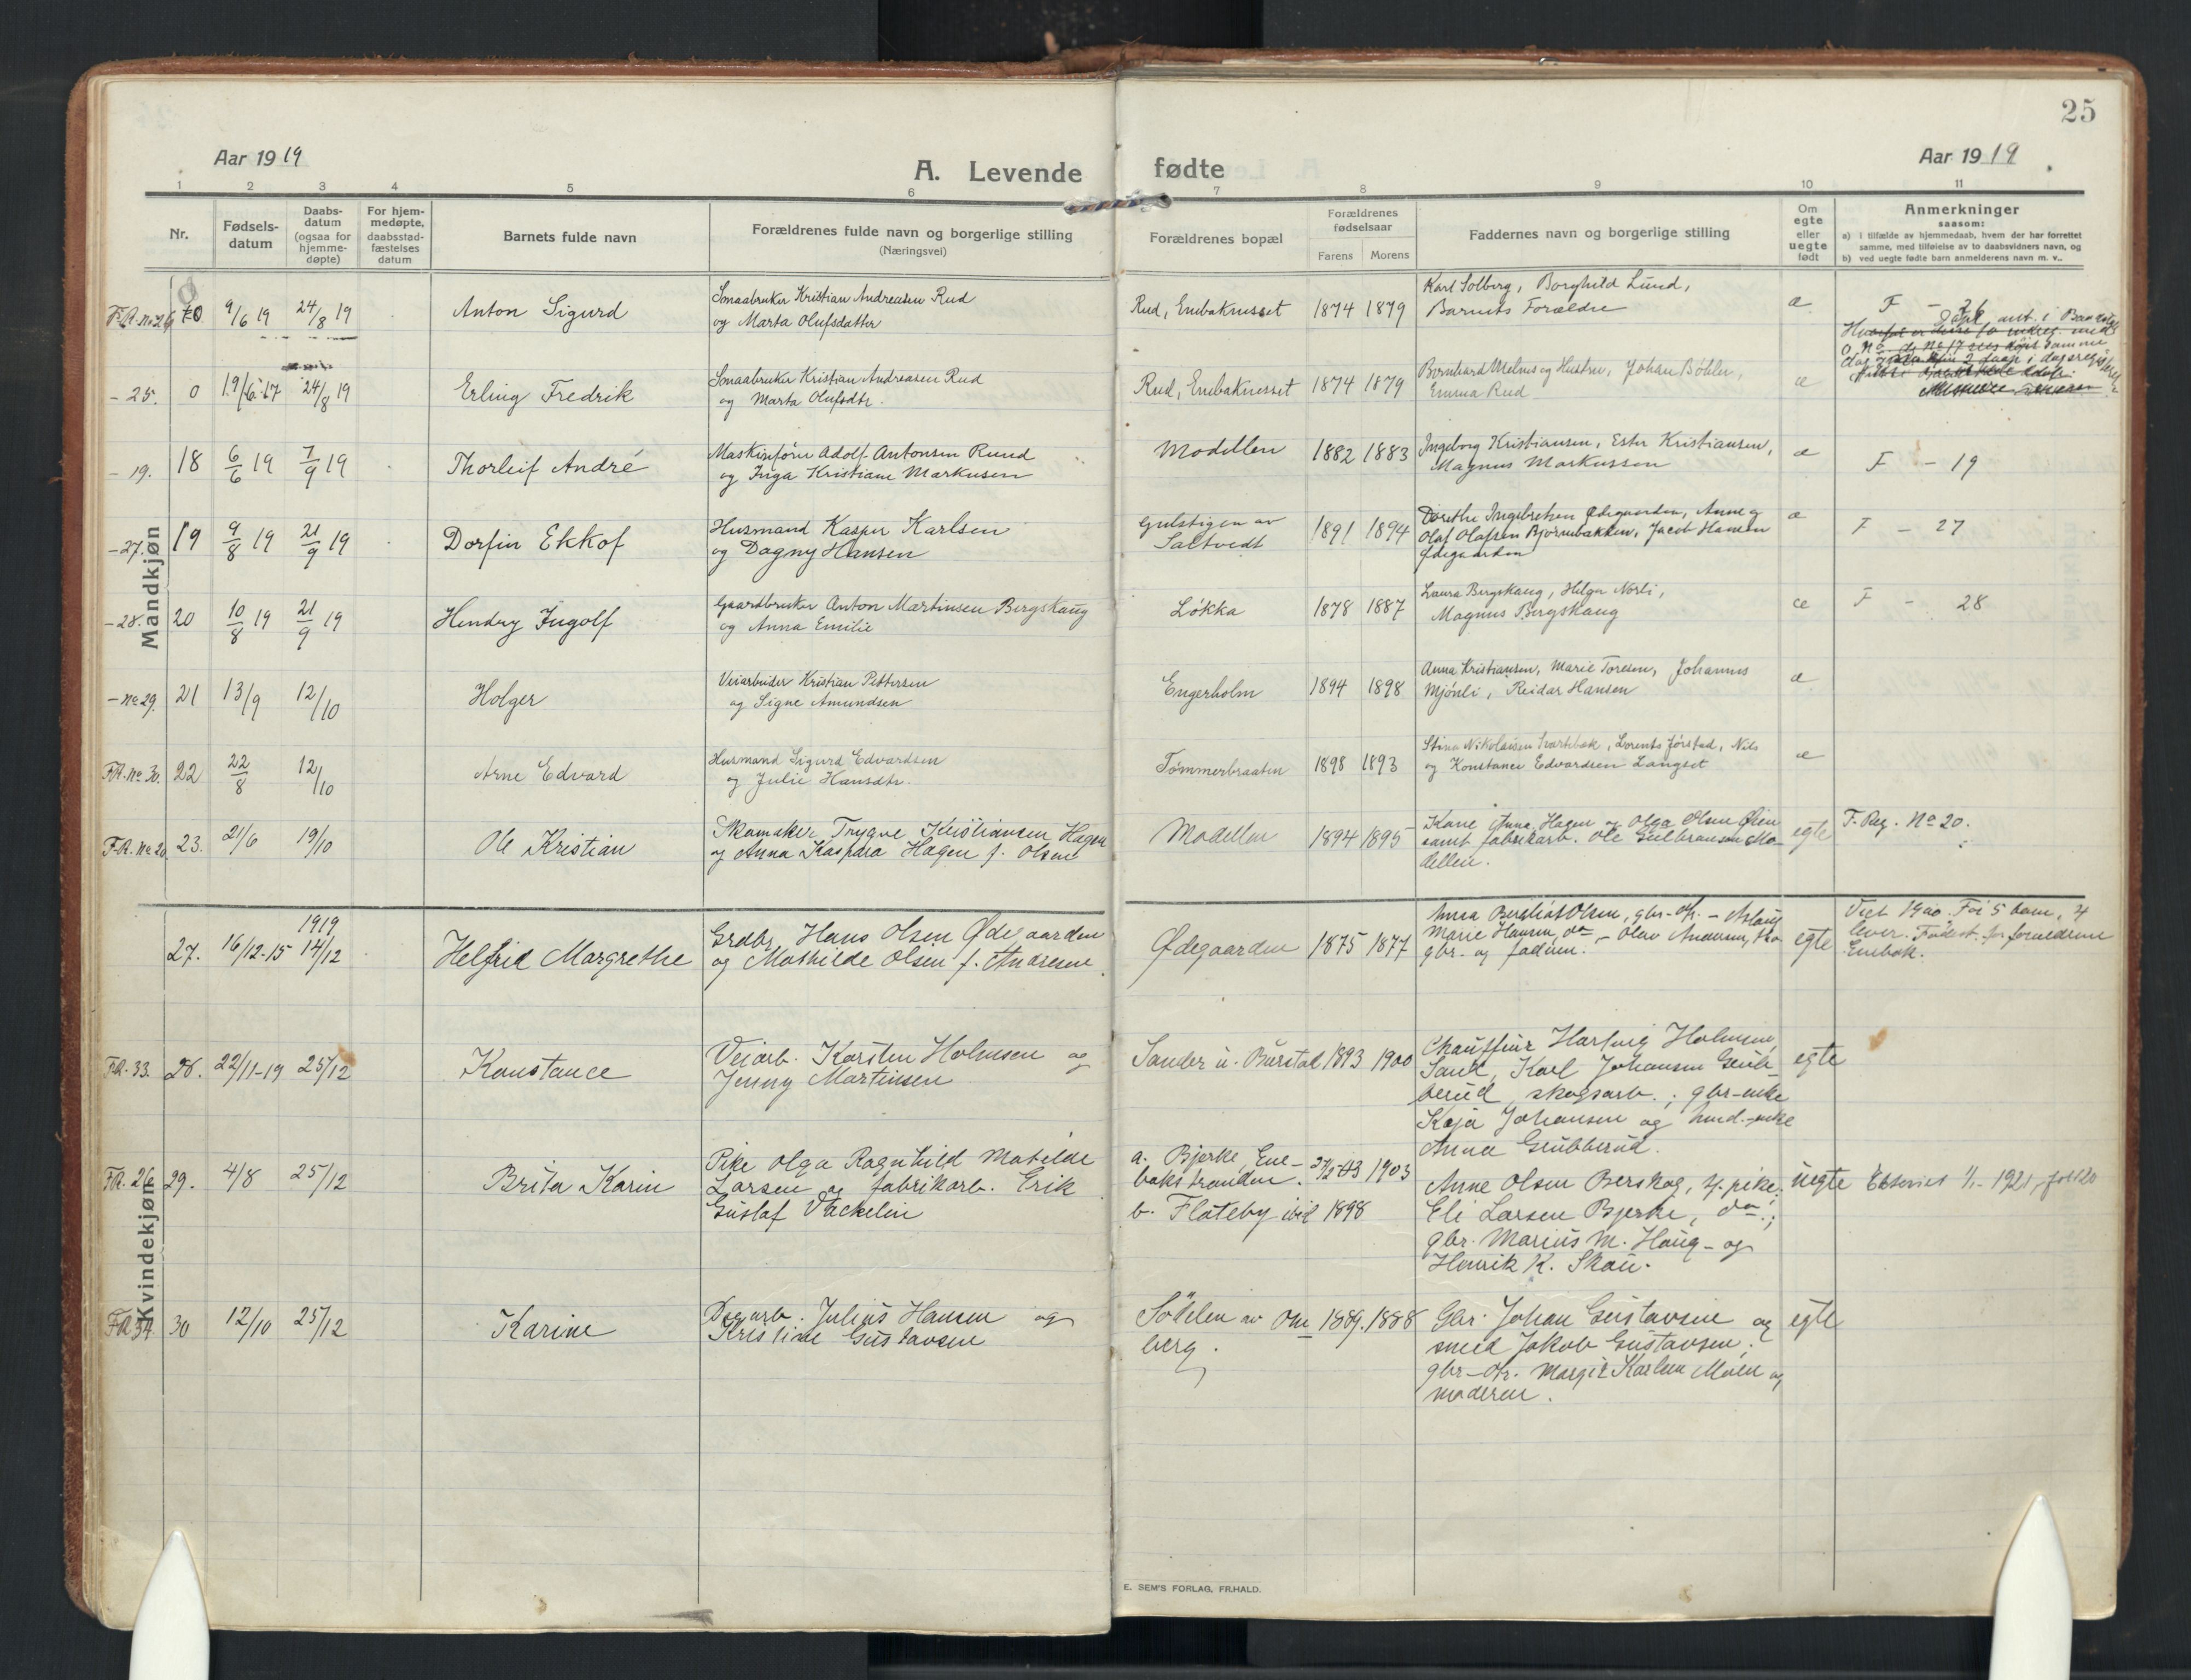 25
Aar 1919
A. Levende fødte
Aar 1919
1 2 3 4 5 6 7 8 9 10 11
Nr.
Fødsels-
datum
Daabs-
datum
(ogsaa for
hjemme-
døpte)
For hjem-
medøpte,
daabsstad-
fæstelses
datum
Barnets fulde navn
Forældrenes fulde navn og borgerlige stilling
(Næringsvei)
Forældrenes bopæl
Forældrenes
fødselsaar
Farens Morens
Faddernes navn og borgerlige stilling
Om
egte
eller
uegte
født
Anmerkninger
saasom:
a) i tilfælde av hjemmedaab, hvem der har forrettet
samme, med tilføielse av to daabsvidners navn, og
b) ved uegte fødte barn anmelderens navn m. v..
Mandkjøn
9/6 19 24/8 19 Anton Sigurd
Smaabruker Kristian Andreasen Rud
og Marta Olufsdatter
Rud, Enebaknesset 1874 1879
Karl Solberg, Borghild Lund,
Barnets Forældre
æ
F - 26
- 25. 0 19/6-17 24/8 19 Erling Fredrik
Smaabruker Kristian Andreasen Rud
og Marta Olufsdtr.
Rud, Enebaknesset 1874 1879
Johan Bøhler,
Emma Rud
æ
- 19. 18 6/6 19 7/9 19 Thorleif André
Adolf Antonsen Rund
og Inga Kristiane Markusen
Modellen 1882 1883
Ingeborg Kristiansen, Ester Kristiansen,
Magnus Markussen
æ
F - 19
- 27. 19 9/8 19 21/9 19 Dorfin Ekkof
Husmand Kasper Karlsen
og Dagny Hansen
Gulstigen av
Saltvedt
1891 1894
Dorethe Ingebretsen Ødegaarden, Anne og
Olaf Olafsen Bjørnebakken, Jacob Hansen
Ødegaarden
æ
F - 27
- 28. 20 10/8 19 21/9 19 Hendry Ingolf
Gaardbruker Anton Martinsen Bergskaug
og Anna Emilie
Løkka 1878 1887
Laura Bergskaug, Helga Norli,
Magnus Bergskaug
æ
F - 28
- No 29. 21 13/9 12/10 Holger
Veiarbeider Kristian Pettersen
og Signe Amundsen
Engerholm 1894 1898
Anna Kristiansen, Marie Toresen, Johannes
Mjønli, Reidar Hansen
æ
FR. No 30. 22 22/8 12/10 Arne Edvard
Husmand Sigurd Edvardsen
og Julie Hansdtr.
Tømmerbraaten 1898 1893
Stina Nikolaisen Svartebæk, Lorents Jørstad, Nils
og Konstance Edvardsen Langset
æ
F.R. No 20. 23. 21/6 19/10 Ole Kristian
Skomaker Trygve Kristiansen Hagen
og Anna Kaspara Hagen f. Olsen
Modellen 1894 1895
Kone Anna Hagen og Olga Olsen Øien
samt fabrikarb. Ole Gulbransen Mo-
dellen.
egte
F. Reg. No 20.
Kvindekjøn
27. 16/12-15 1919 14/12 Helfrid Margrethe
Grdbr. Hans Olsen Ødegaarden
og Mathilde Olsen f. Andresen
Ødegaarden 1875 1877
Anna Bergliot Olsen, gbr-dtr. - Aslaug
Marie Hansen, do - Olav Andersen,
gbr. og faderen.
egte
Viet 1900. Før 5 barn, 4
lever. for forældrene
Enebak.
FR. 33. 28. 22/11-19 25/12 Konstance
Veiarb. Karsten Holmsen og
Jenny Martinsen
Sander u. Børstad 1893 1900
Chauffeur Hartvig Holmsen,
Sand, Karl Johansen Grub-
berud, skogsarb.; gbr-enke
Kaja Johansen og husd.-enke
Anna Grubberud.
egte
FR. 26 29. 4/8 25/12 Brita Karin
Pike Olga Ragnhild Matilde
Larsen og fabrikarb. Erik
Gustaf Väckelin
a. Bjerke, Ene-
bakstranden. 1903
b. Flateby ibid 1898
Anne Olsen Berskog, tj. pike;
Eli Larsen Bjerke, do.;
gbr. Marius M. Haug - og
Henrik K. Skau.
uegte
1/1 - 1921
FR 34 30 12/10 25/12 Karine
Dagarb. Julius Hansen og
Kristine Gustavsen
Sotelen av Om-
berg.
1889. 1888
Gbr. Johan Gustavsen og
smed Jakob Gustavsen;
gbr-dtr. Margit Karlsen Moen og
moderen.
egte
E. SEM'S FORLAG, FR.HALD.